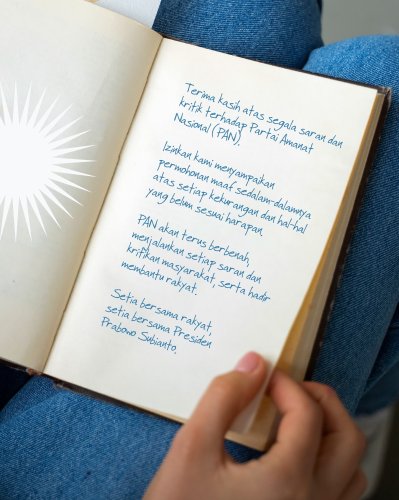 Terima kasih atas segala saran dan
kritik terhadap Partai Amanat
Nasional (PAN).
Izinkan kami menyampaikan
permohonan maaf sedalam-dalamnya
atas setiap kekurangan dan hal-hal
yang belum sesuai harapan.
PAN akan terus berbenah,
menjalankan setiap saran dan
kritikan masyarakat, serta hadir
membantu rakyat.
Setia bersama rakyat,
setia bersama Presiden
Prabowo Subianto.